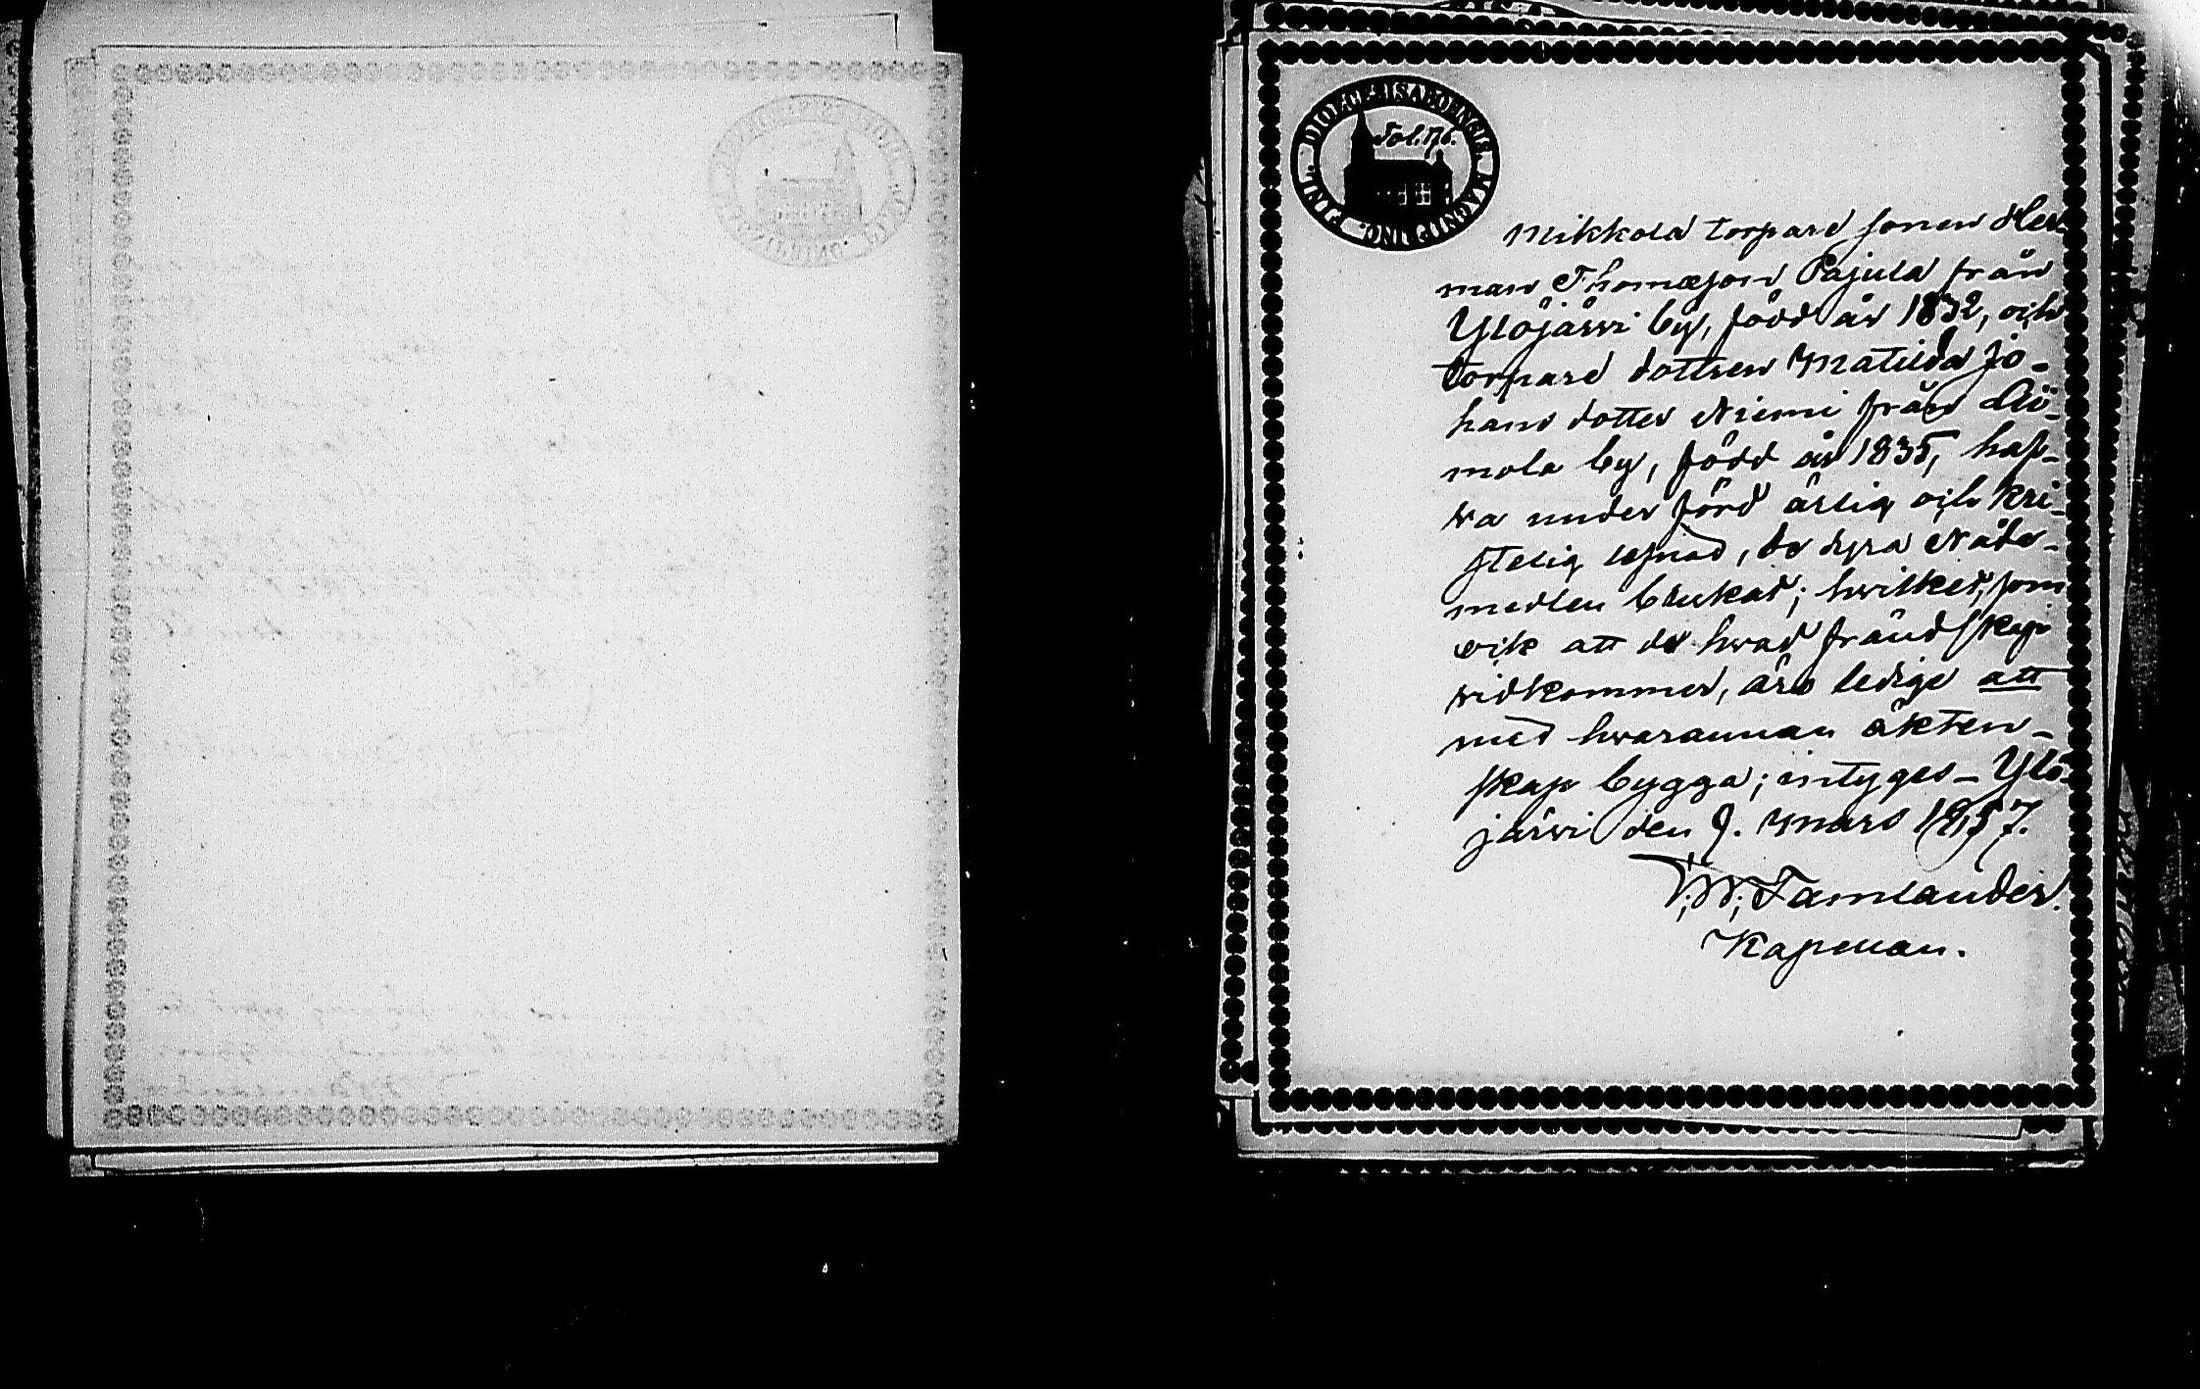 DIOECESIS ABOENSIS. MAGNI PRINC. FINL.
Fol. 176.
Mikkola torpare sonen Her-
man Thomæson Pajula från
Ylöjärvi by, född år 1832, och
torpare dottren Matilda Jo-
hans dotter Niemi från
mola by, född år 1835, haf-
va under förd ärlig och kri-
stelig lefnad, de dyra Nåde-
medlen brukat; hvilket, som
ock att de hvad frändskap
vidkommer, äro ledige att
med hvarannan äkten-
skap bygga; intyges – Ylö-
järvi den 9. Mars 1857.
Tamlander.
Kapellan.